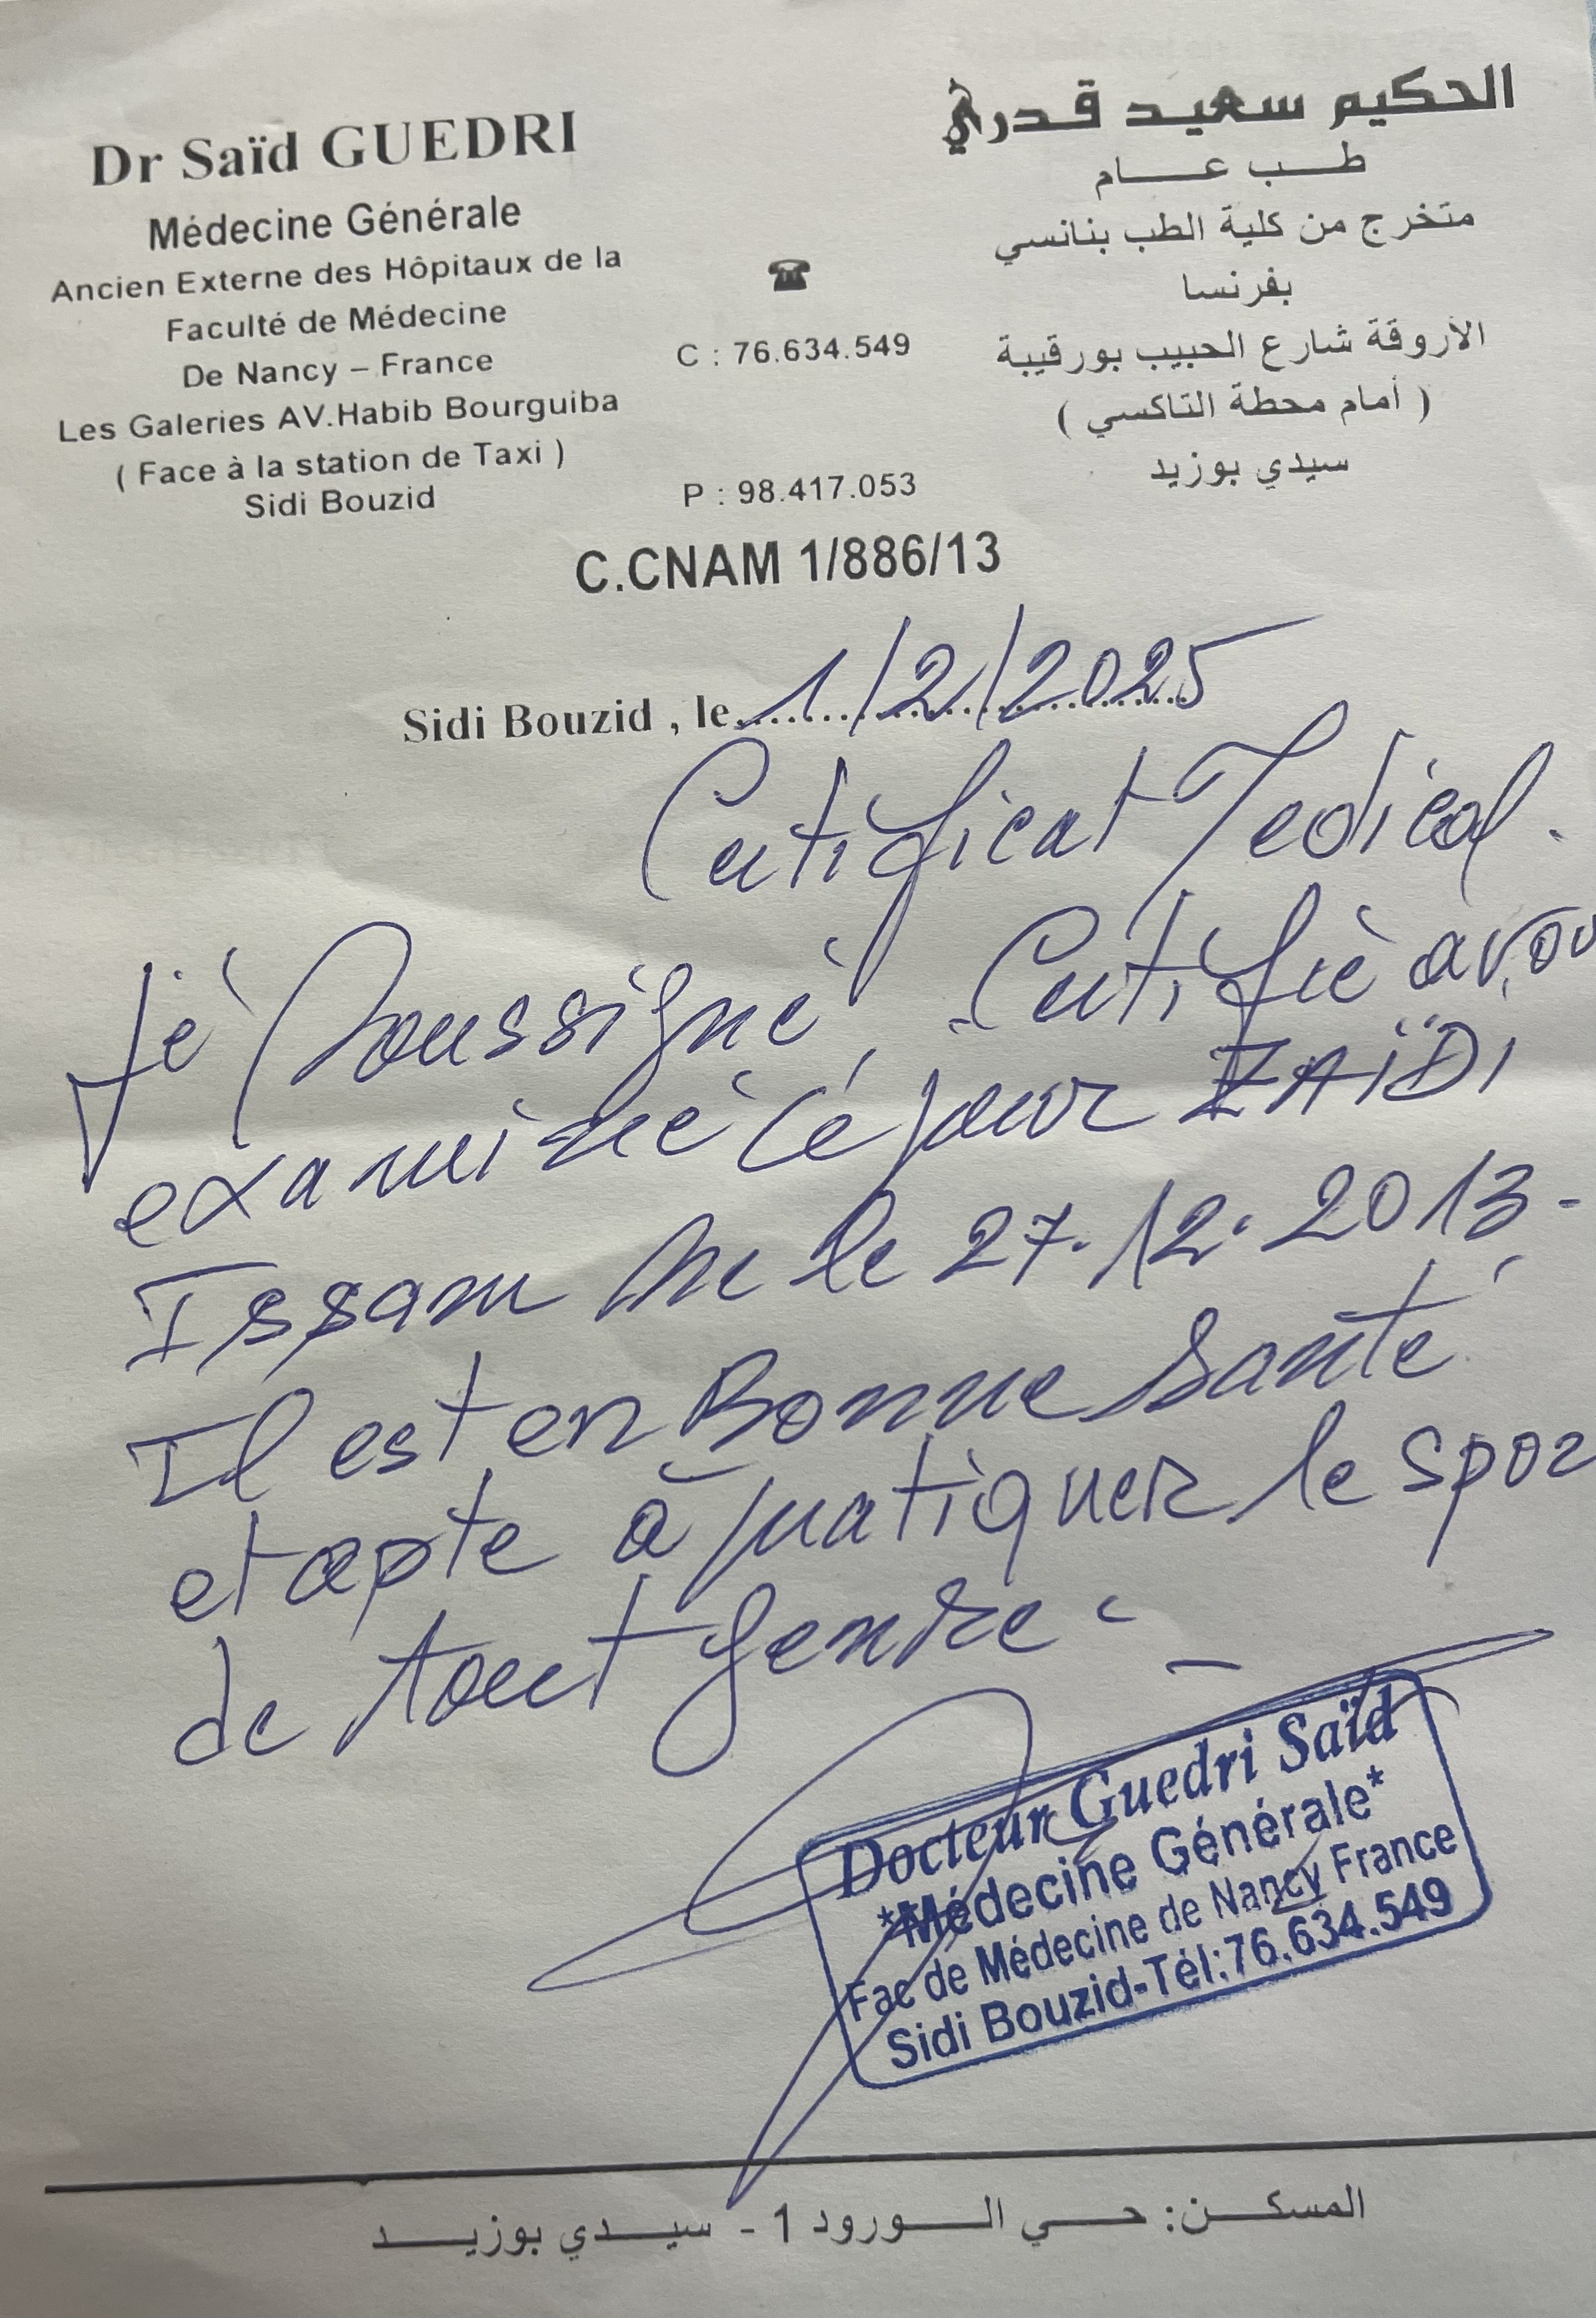 Dr Saïd GUEDRI
Médecine Générale
Ancien Externe des Hôpitaux de la
Faculté de Médecine
De Nancy – France
Les Galeries AV.Habib Bourguiba
( Face à la station de Taxi )
Sidi Bouzid
☎
C : 76.634.549
P : 98.417.053
الحكيم سعيد قدري
طب عام
متخرج من كلية الطب بنانسي
بفرنسا
الأروقة شارع الحبيب بورقيبة
( أمام محطة التاكسي )
سيدي بوزيد
C.CNAM 1/886/13
Sidi Bouzid , le 1/2/2025
Certificat Medical.
Je Soussigné, Certifie avoi
examiné ce jour ZAÏDI
Issam né le 27.12.2013-
Il est en Bonne Santé
et apte à pratiquer le spor
de tout genre -
Docteur Guedri Saïd
*Médecine Générale*
Fac de Médecine de Nancy France
Sidi Bouzid-Tél:76.634.549
المسكن: حي الورود 1 - سيدي بوزيد